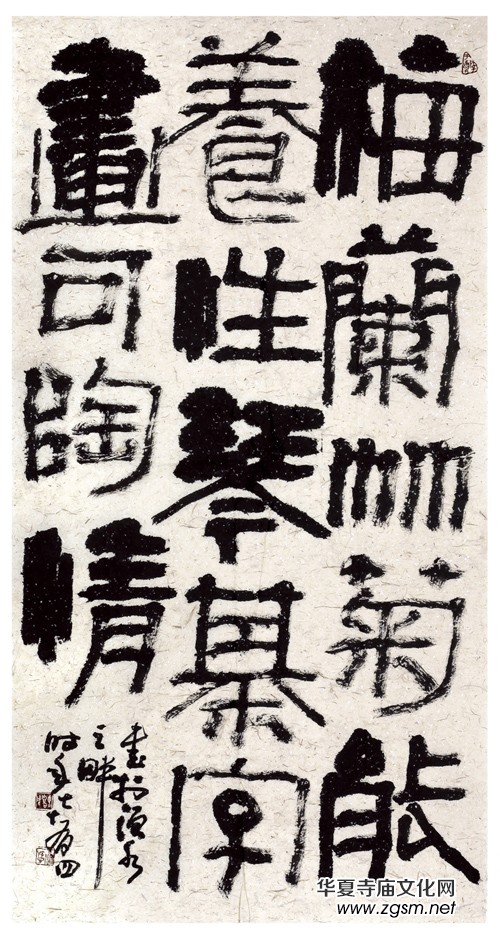 梅蘭竹菊能
養性琴棊字
畫可陶情
書於水
之畔
时年七十有四
华夏寺庙文化网
www.zgsm.net